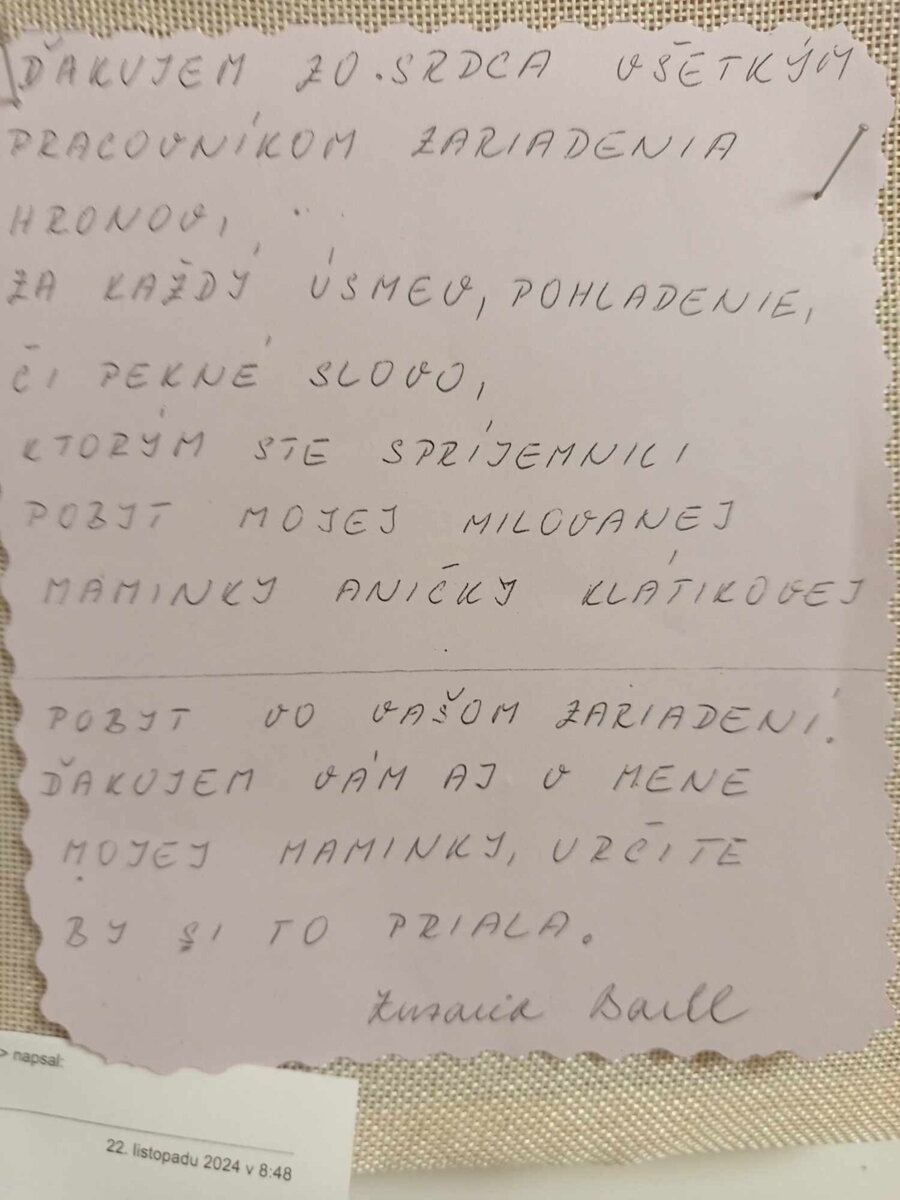 ĎAKUJEM ZO.SRDCA VŠETKÝM
PRACOVNÍKOM ZARIADENIA
HRONOV,
ZA KAŽDÝ ÚSMEV, POHLADENIE,
ČI PEKNÉ SLOVO,
KTORÝM STE SPRÍJEMNILI
POBYT MOJEJ MILOVANEJ
MAMINKY ANIČKY KLÁTIKOVEJ
POBYT VO VAŠOM ZARIADENÍ.
ĎAKUJEM VÁM AJ V MENE
MOJEJ MAMINKY, URČITE
BY SI TO PRIALA.
Zuzana
> napsal:
22. listopadu 2024 v 8:48